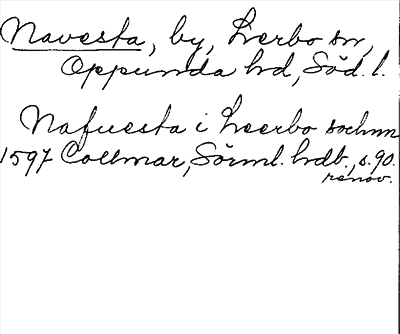 Navesta, by, Lerbo sn,
Oppunda hd, Söd. l.
Nafuesta i Leerbo sochnn
1597 Collmar, Sörml. hdb., s. 90.
renov.